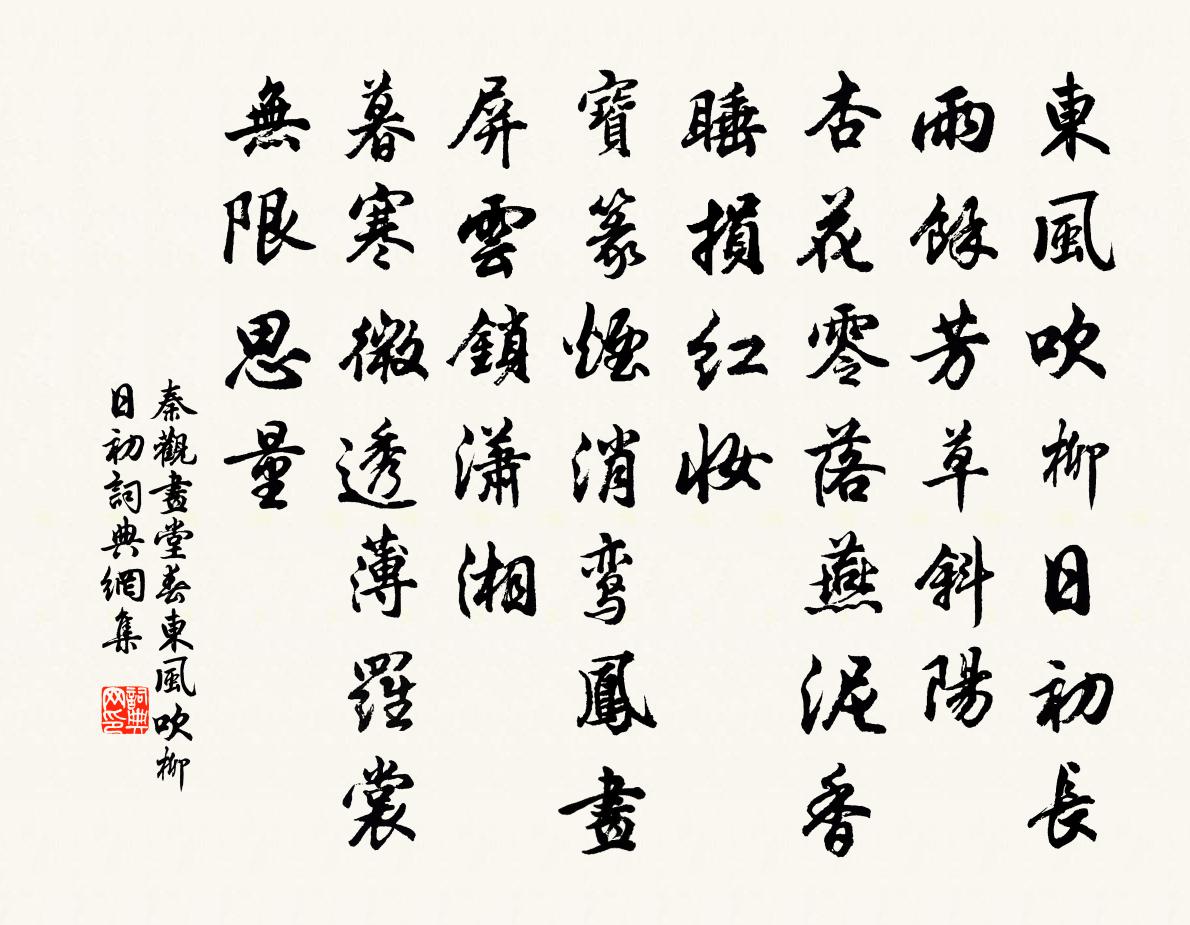 東風吹柳日初長
雨餘芳草斜陽
杏花零落燕泥香
睡損紅妝
寶篆煙消鸞鳳畫
屏雲鎖瀟湘
暮寒微透薄羅裳
無限思量
秦觀畫堂春東風吹柳
日初詞典網集
詞典
网印